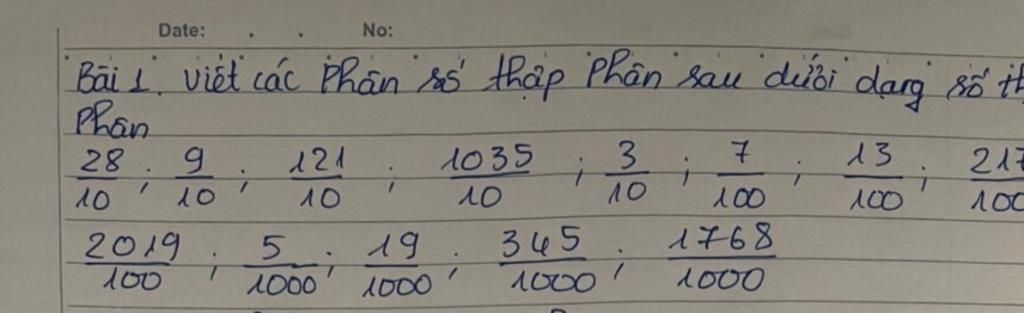 Date: . . No:
Bài 1. viết các phân số thập phân sau dưới dạng số th
phân
28/10 ; 9/10 ; 121/10 ; 1035/10 ; 3/10 ; 7/100 ; 13/100 ; 217/100
2019/100 ; 5/1000 ; 19/1000 ; 345/1000 ; 1768/1000